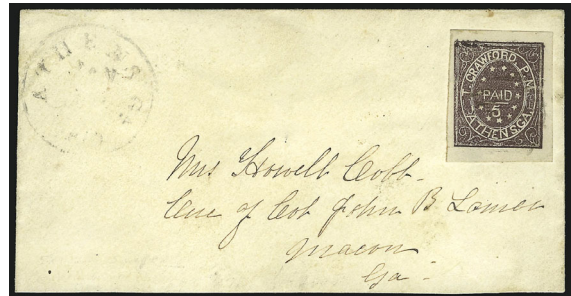 ATHENS GA.
T. CRAWFORD, P.M.
PAID
5
ATHENS, GA.
Mrs Howell Cobb
Care of Col John B Lamar
Macon
Ga